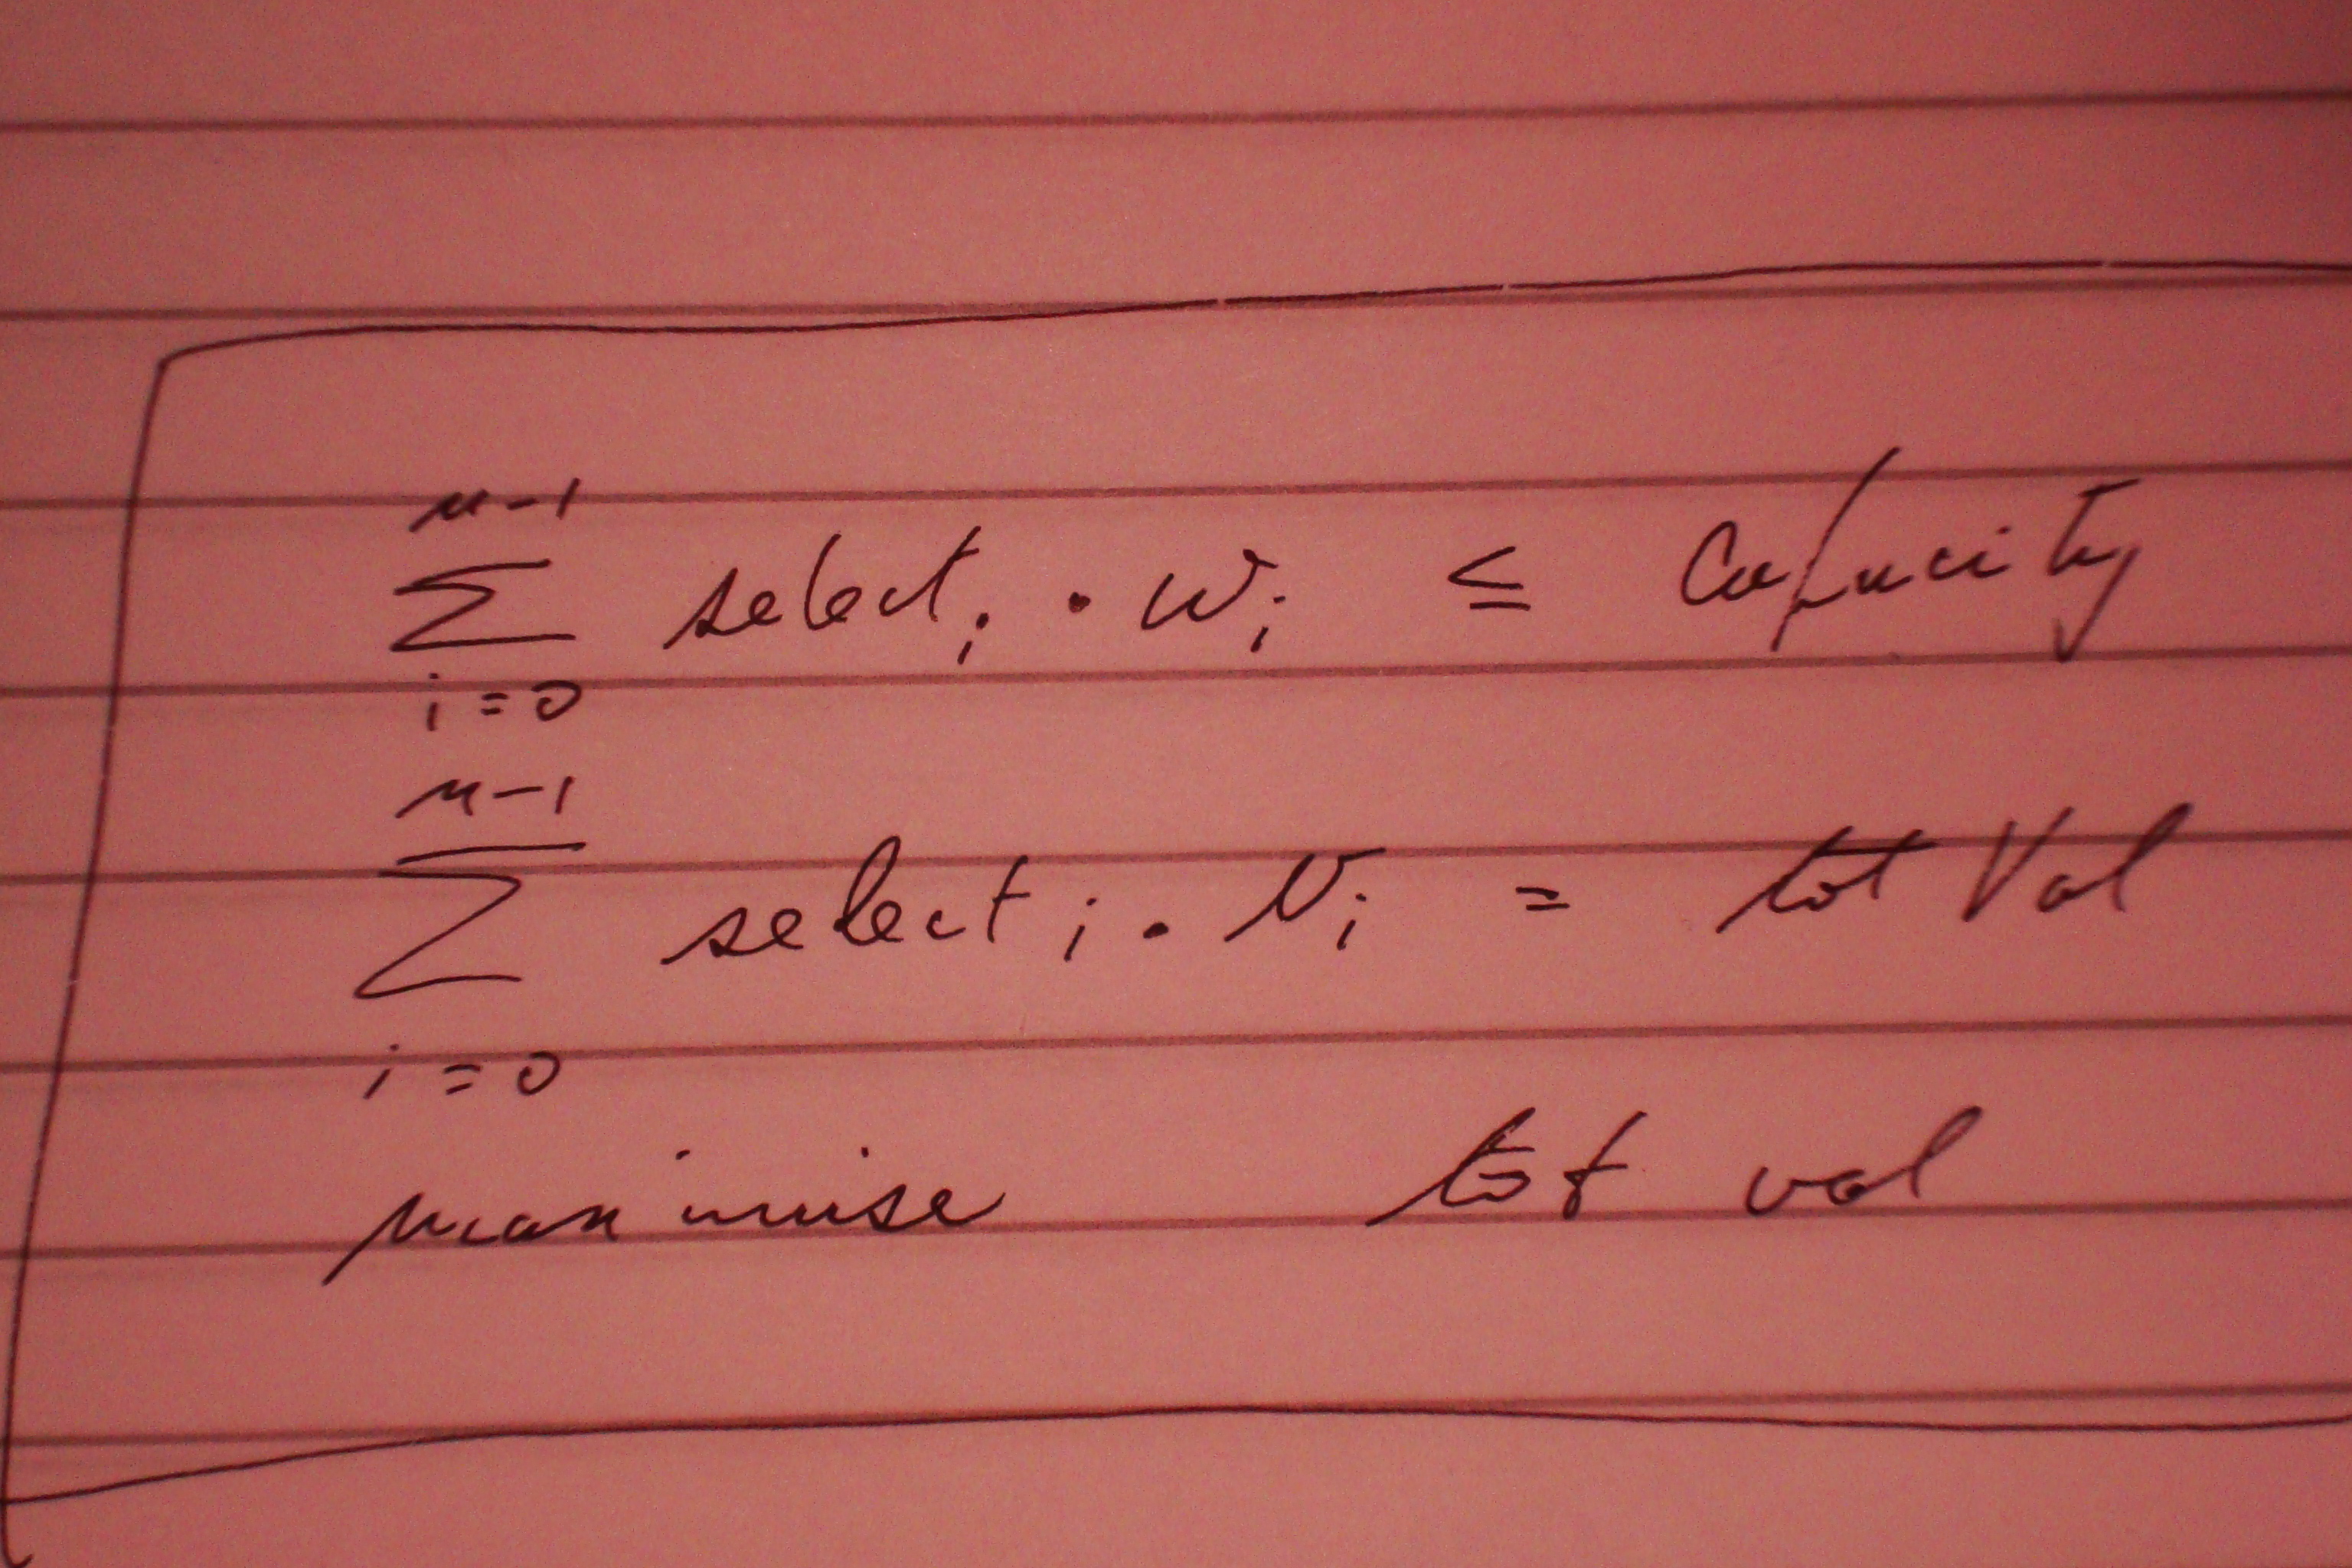 n-1
Σ select i · w i ≤ Capacity
i = 0
n-1
Σ select i · v i = tot Val
i = 0
maximise tot val